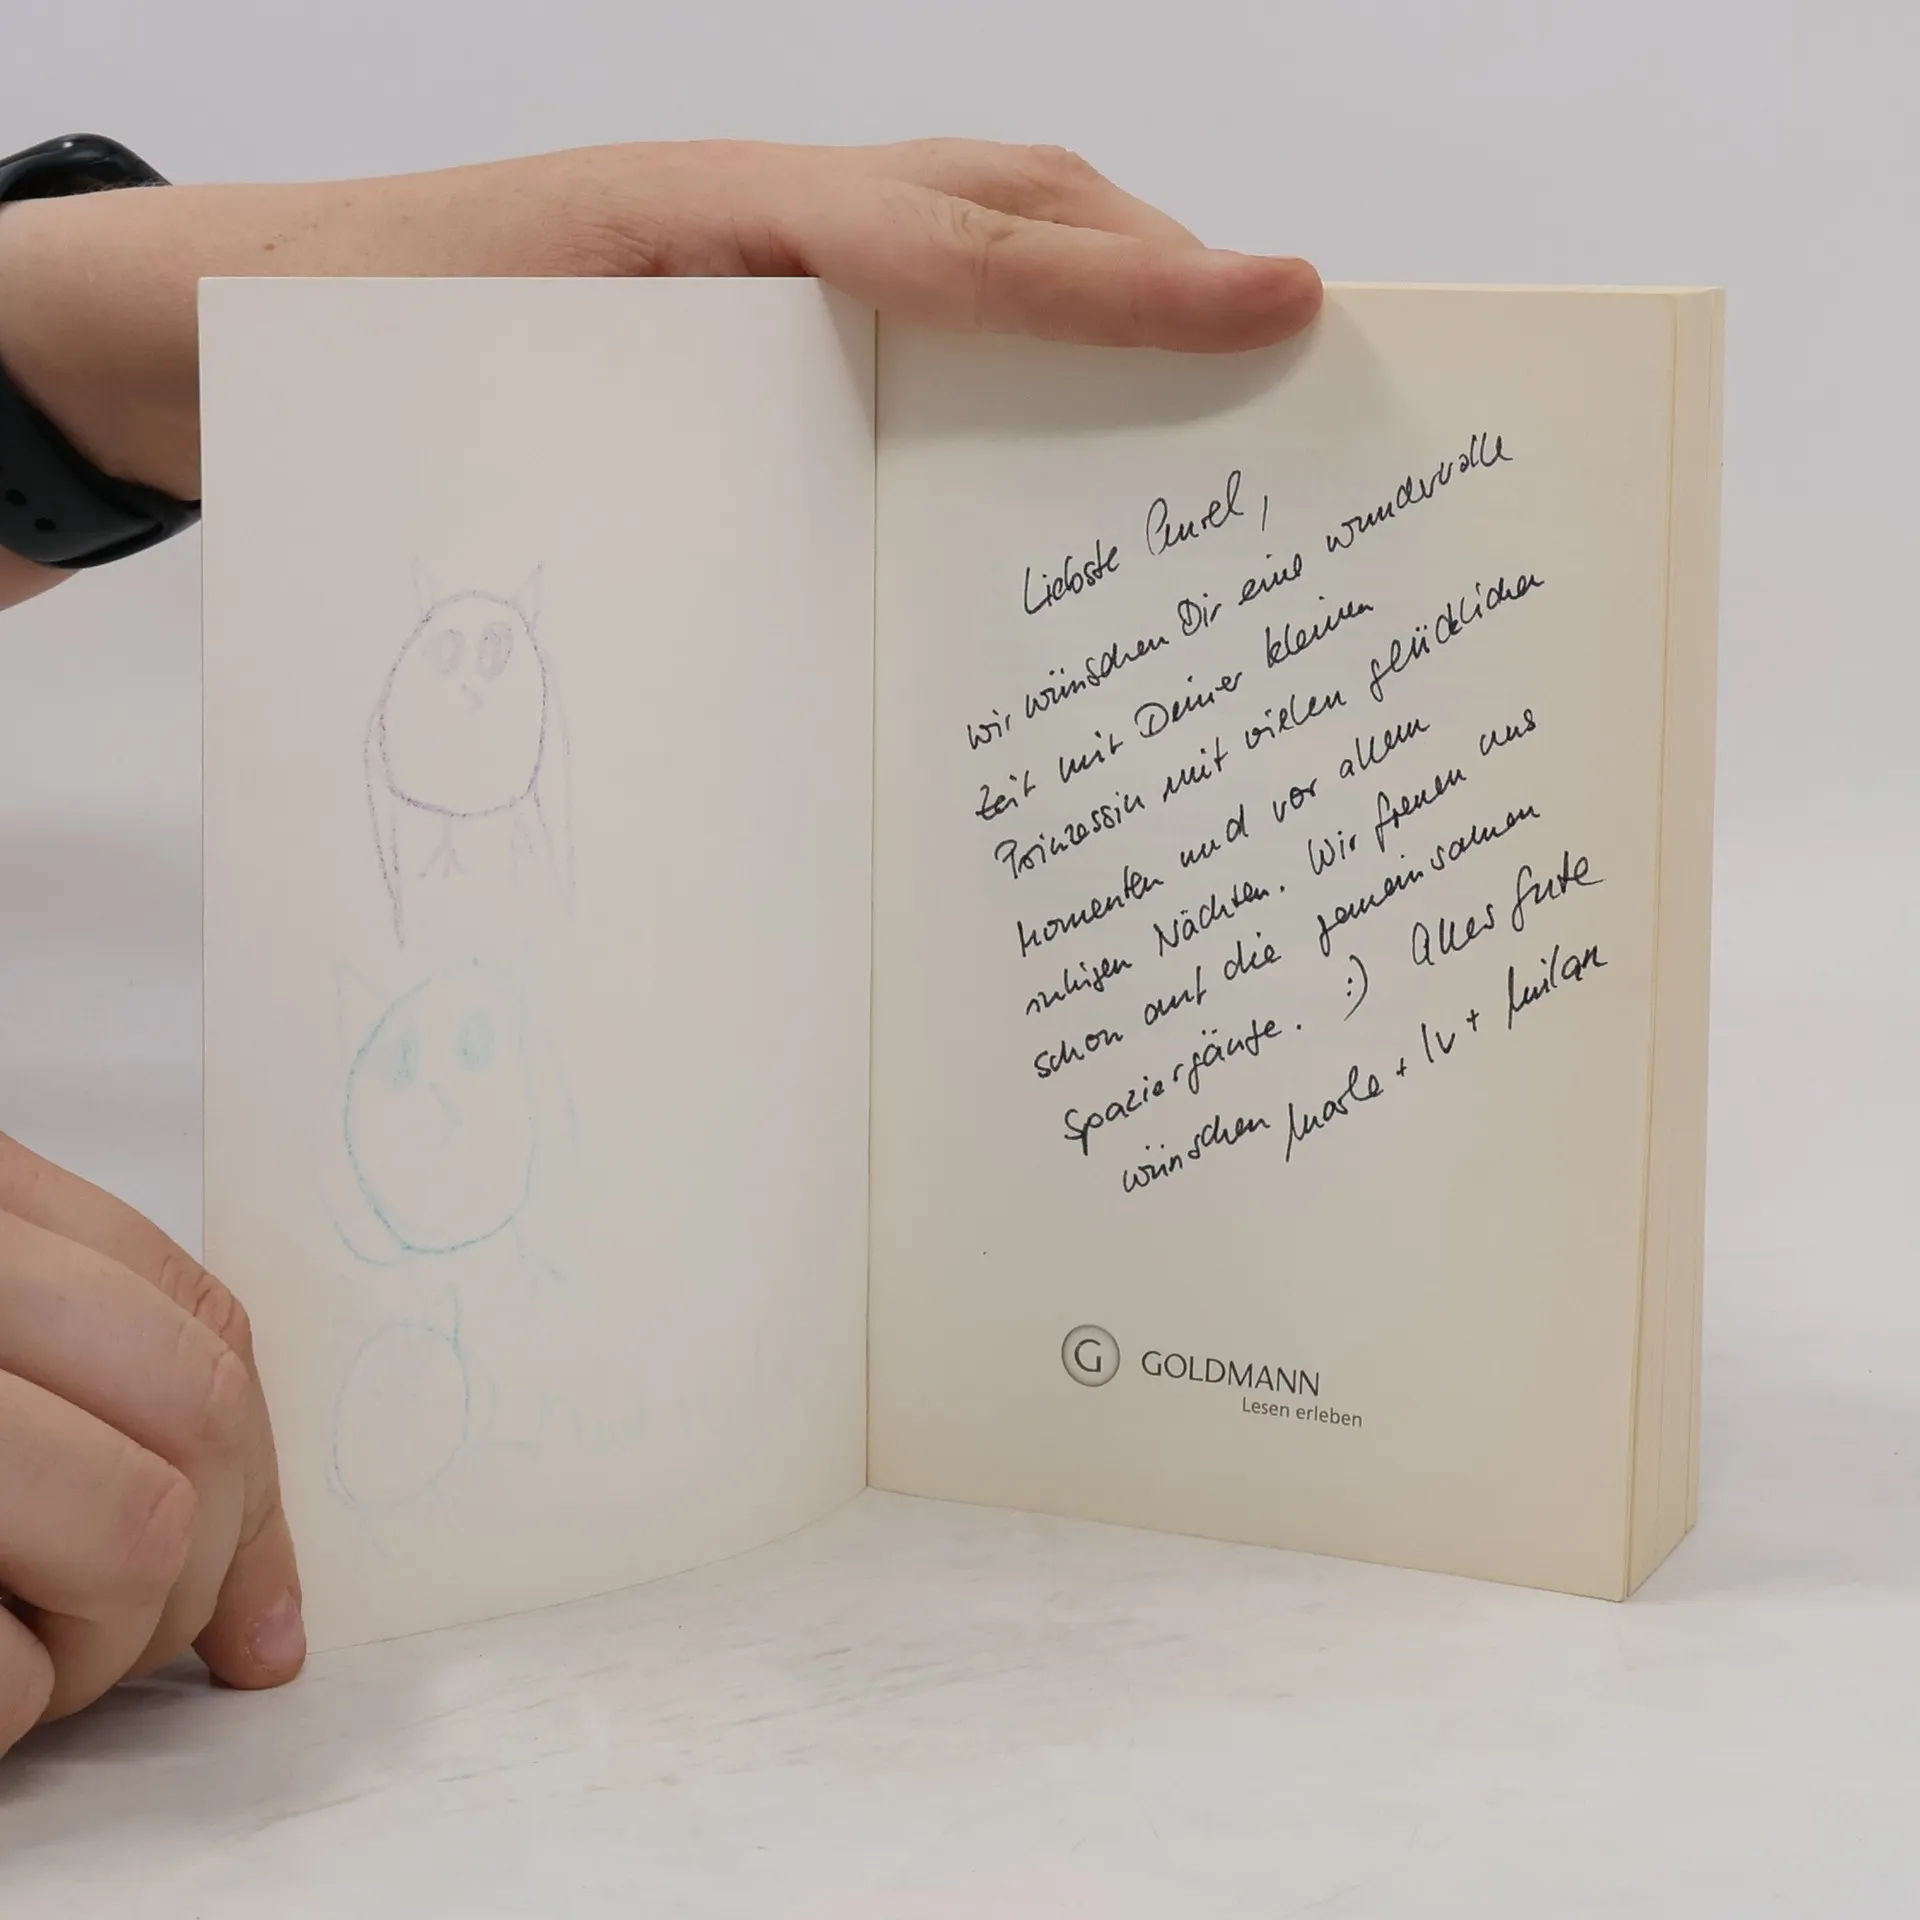 Liebste
wir wünschen Dir eine wundervolle
Zeit mit Deiner kleinen
Prinzessin mit vielen glücklichen
Momenten und vor allem
ruhigen Nächten. Wir freuen uns
schon auf die gemeinsamen
Spaziergänge. :) Alles Gute
wünschen + Iv + Milan
G GOLDMANN
Lesen erleben